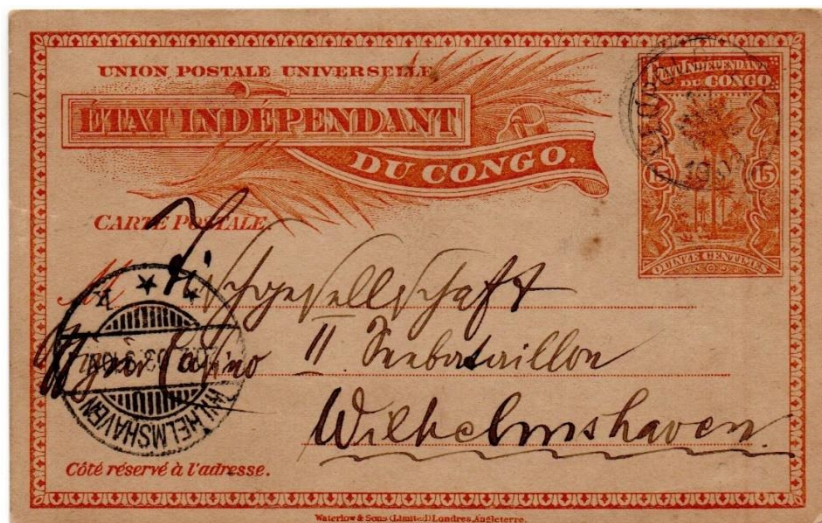 UNION POSTALE UNIVERSELLE
ÉTAT INDÉPENDANT
DU CONGO.
ÉTAT INDÉPENDANT
DU CONGO.
15 15
QUINZE CENTIMES
CARTE POSTALE
M
Tischgesellschaft
Casino II. Seebataillon
Wilhelmshaven.
WILHELMSHAVEN
Côté réservé à l'adresse.
Waterlow & Sons Limited Londres, Angleterre.